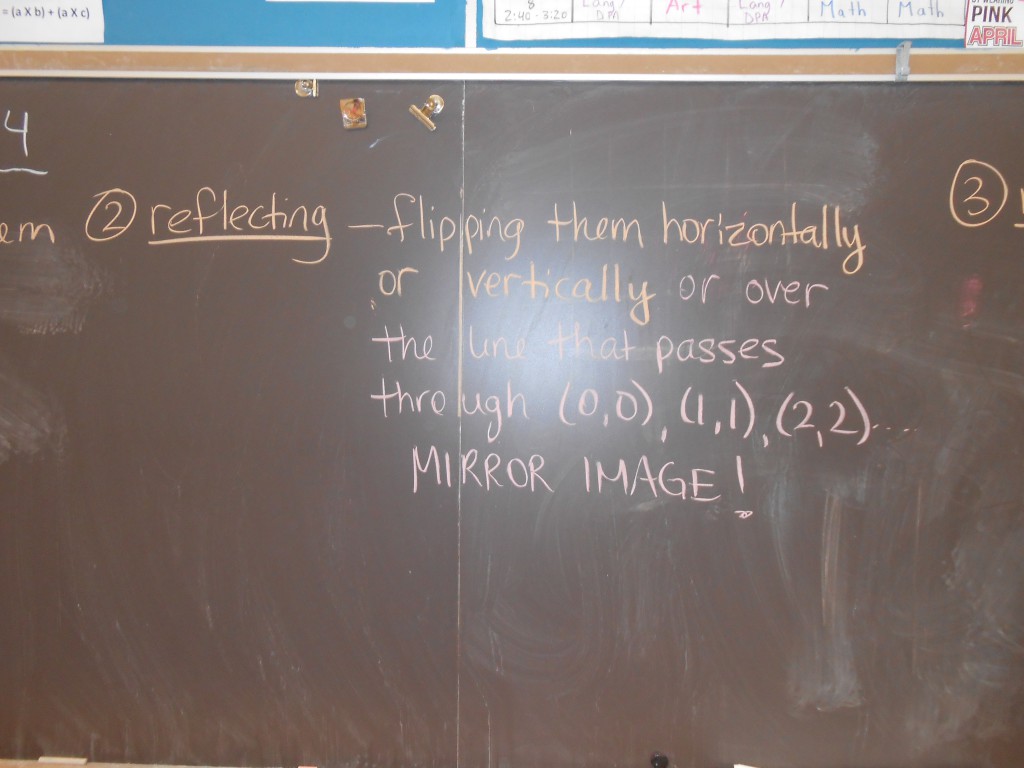 = (a X b) + (a X c)
8
2:40 - 3:20
Lang/
DPA
Art
Lang/
DPA
Math
Math
PINK
APRIL
4
em
② reflecting — flipping them horizontally
or vertically or over
the line that passes
through (0,0), (1,1), (2,2).....
MIRROR IMAGE!
③